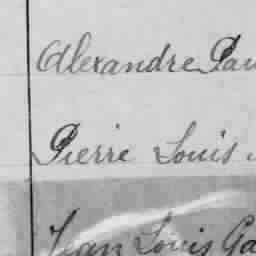 Alexandre Pau
Pierre Louis
Jean Louis Ga